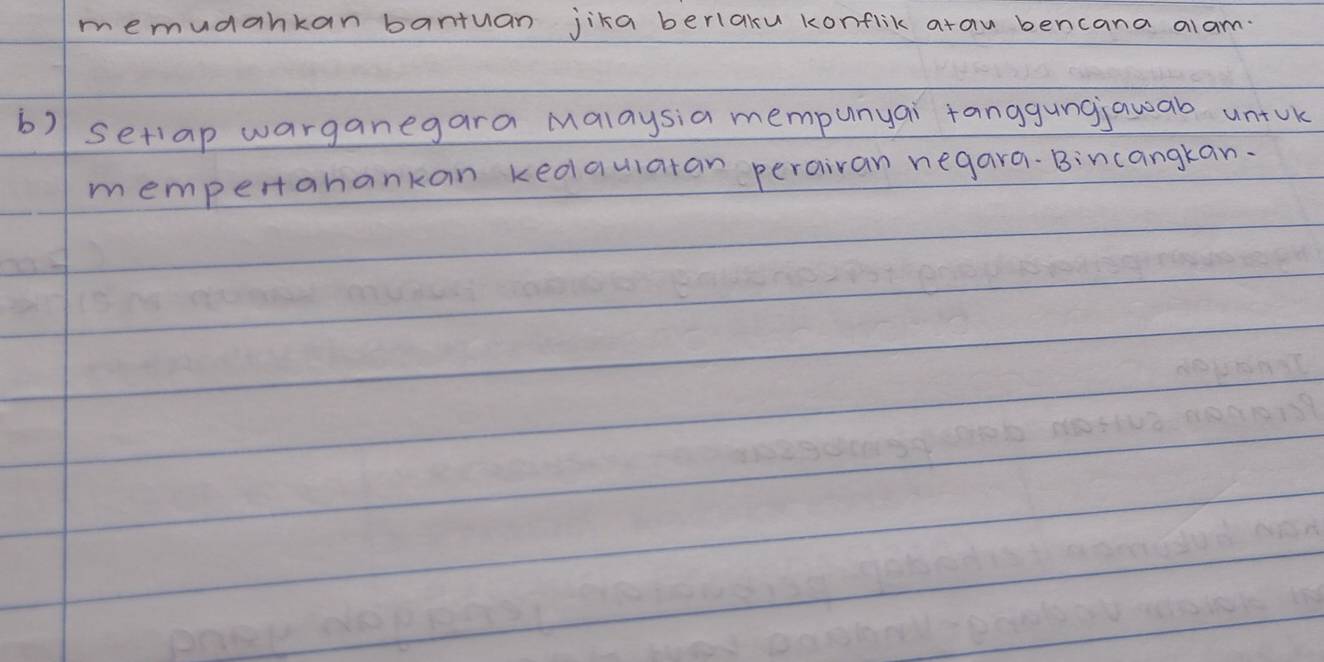 memudahkan bantuan jika berlaku konflik atau bencana alam.
b) setiap warganegara Malaysia mempunyai tanggungjawab untuk
mempertahankan kedaulatan perairan negara. Bincangkan.